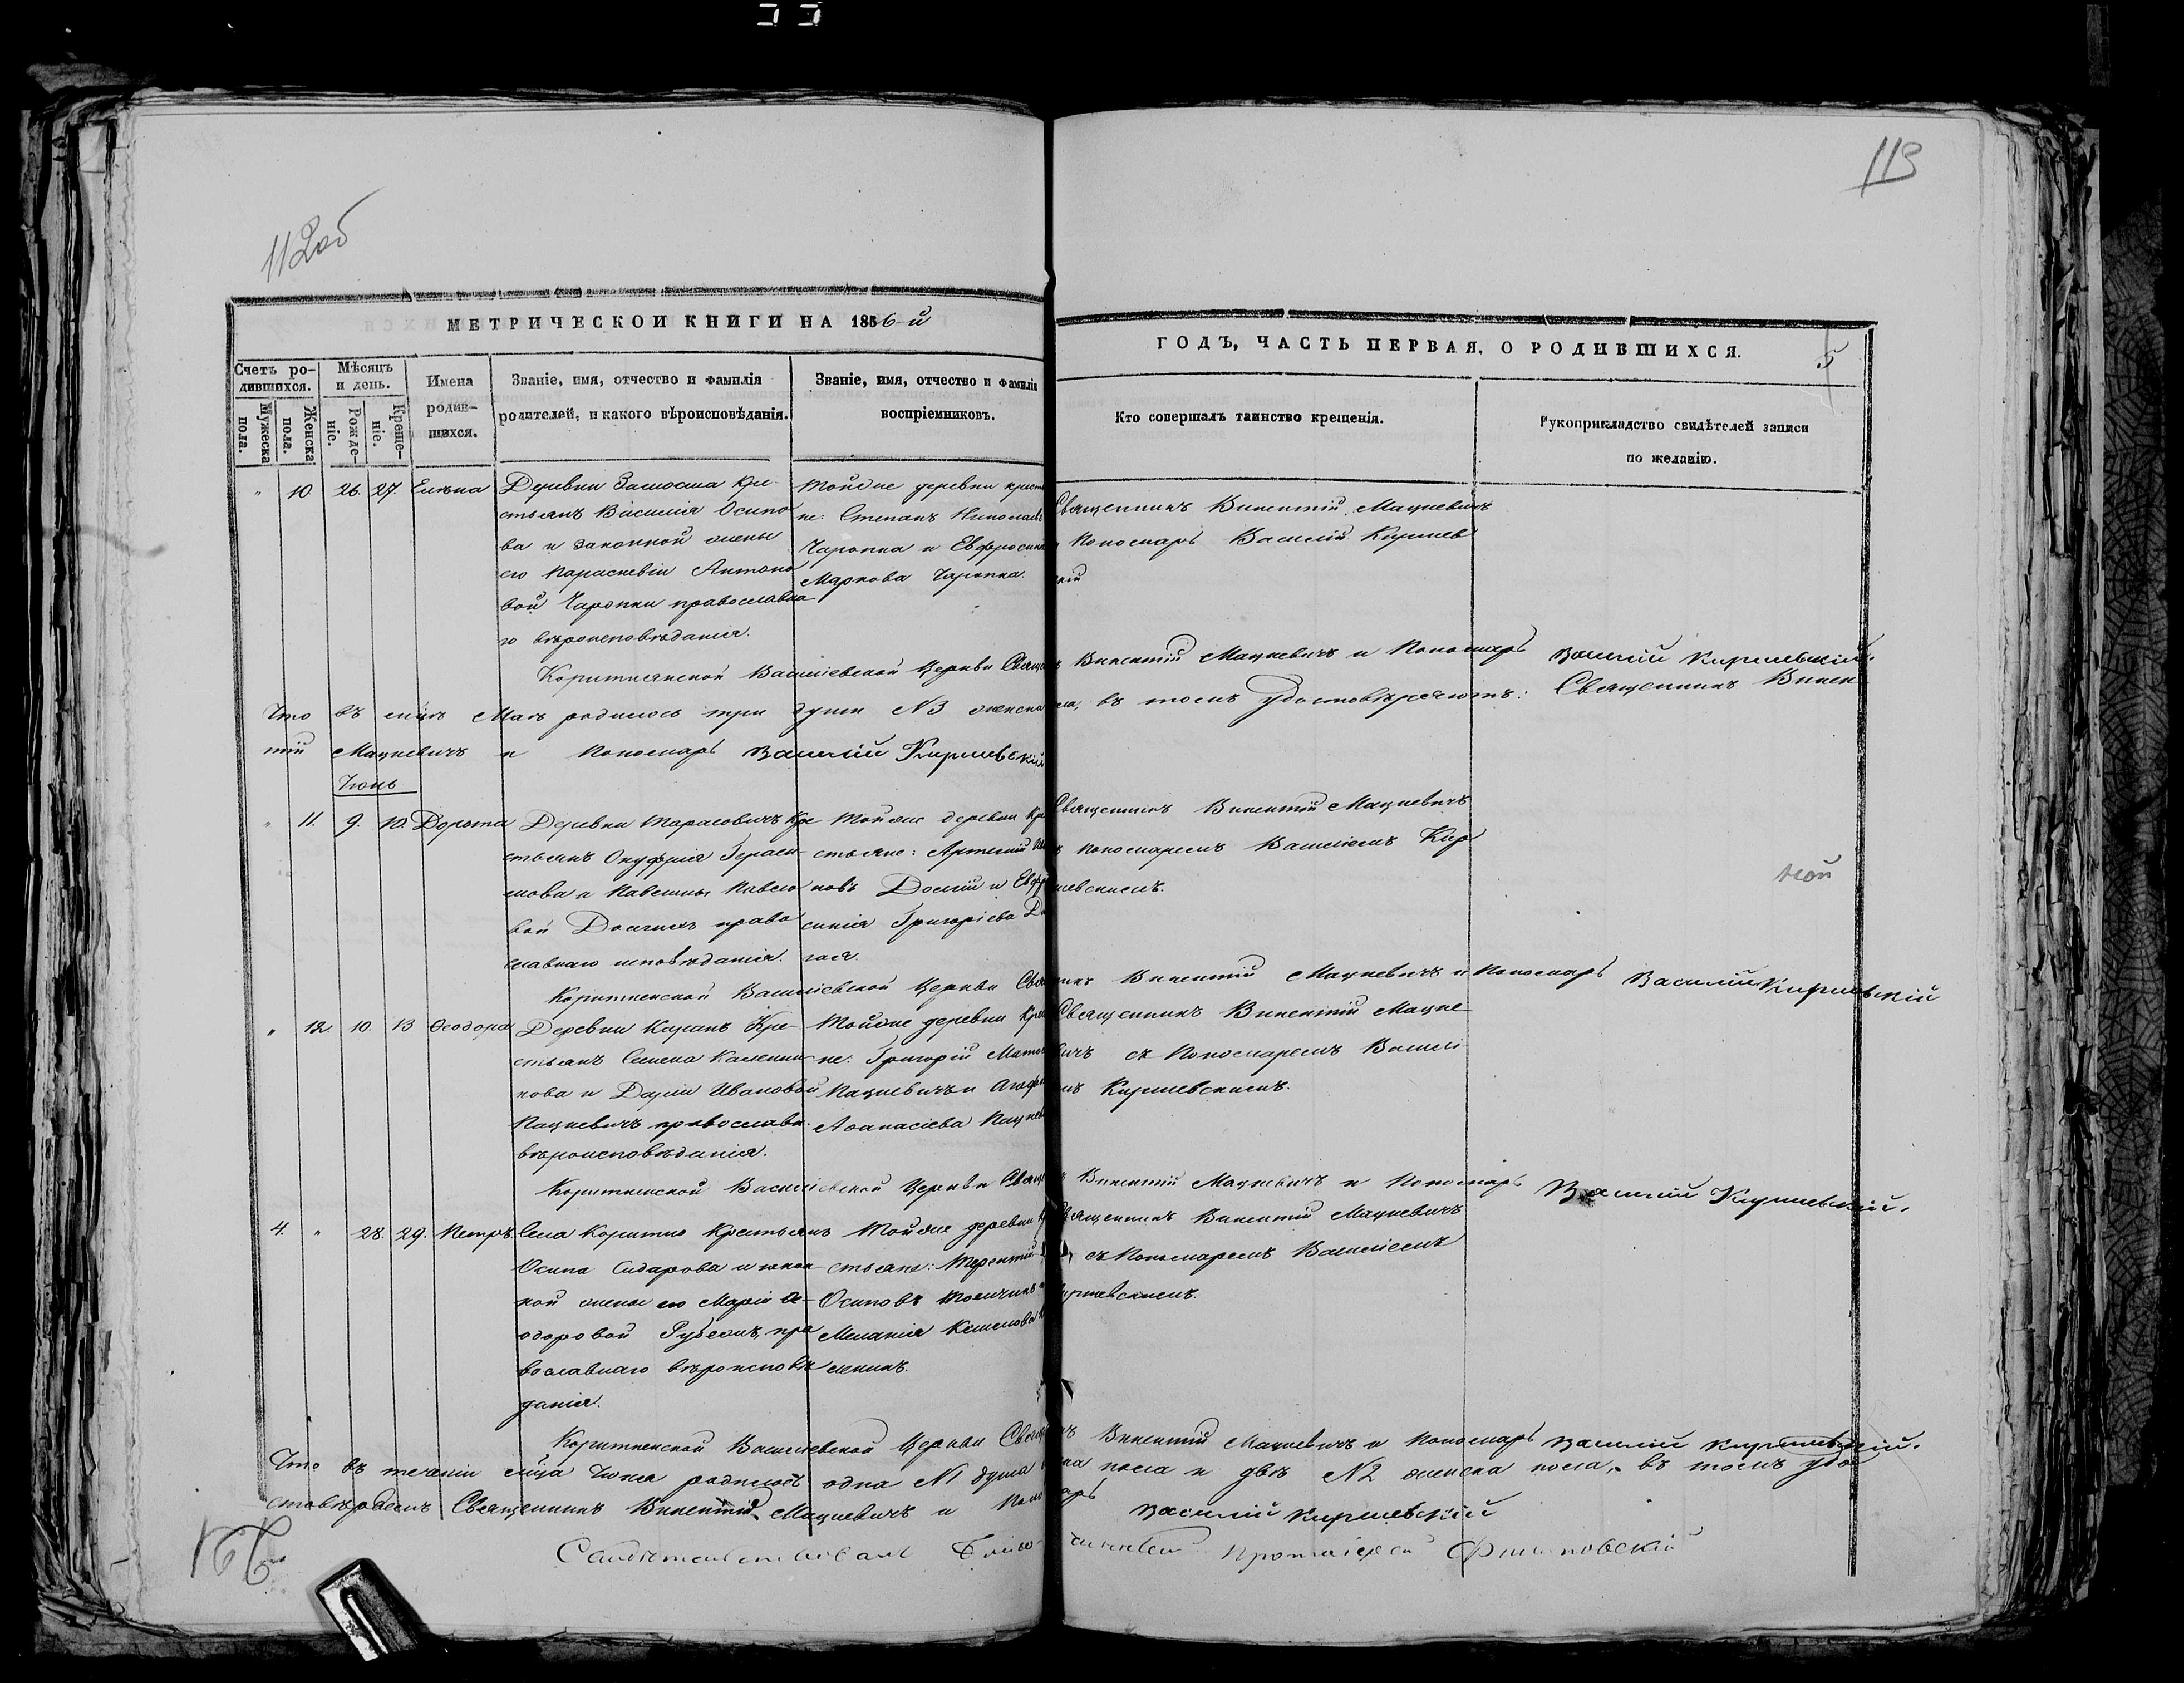 112 об
113
МЕТРИЧЕСКОЙ КНИГИ НА 1856-й
ГОДЪ, ЧАСТЬ ПЕРВАЯ, О РОДИВШИХСЯ.
5
Счетъ ро-
дившихся.
Мужеска
пола.
Женска
пола.
Мѣсяцъ
и день.
Рожде-
ніе.
Креще-
ніе.
Имена
родив-
шихся.
Званіе, имя, отчество и фамилія
родителей, и какого вѣроисповѣданія.
Званіе, имя, отчество и фамилія
воспріемниковъ.
Кто совершалъ таинство крещенія.
Рукоприкладство свидѣтелей записи
по желанію.
" 10. 26. 27. Елена
Деревни Замосша кре-
стьянъ Василія Осипо
ва и законной жены
его Параскевіи Антоно
вой Чаропки православна
го вѣроисповѣданія.
Тойже деревни крест
не: Степанъ Николаевъ
Чаропка и Евфросинія
Маркова Чаропка.
Священникъ Викентій Мацкевичъ
Пономарь Василій Киршев
скій
Корытненской Василіевской Церкви Священникъ Викентій Мацкевичъ и Пономарь Василій Киршевскій.
Что въ м-цѣ Маѣ родилось три души №3 женска пола, въ томъ удостовѣряютъ: Священникъ Викен
тій Мацкевичъ и Пономарь Василій Киршевскій
Іюнь
" 11. 9. 10. Дорота
Деревни Тарасовичъ Кре
стьянъ Онуфрія Гераси-
мова и Павлины Павло
вой Долгихъ право
славнаго исповѣданія.
Тойже деревни Кре
стьяне: Артемій
новъ Долгій и Евфро
синія Григоріева До
гая.
Священникъ Викентій Мацкевичъ
съ пономаремъ Василіемъ Кир
шевскимъ.
Корытненской Василіевской Церкви Священникъ Викентій Мацкевичъ и Пономарь Василій Киршевскій
" 12. 10. 13 Ѳеодора
Деревни Карань Кре-
стьянъ Семена Калени-
кова и Даріи Ивановой
Пацкевичъ православн.
вѣроисповѣданія.
Тойже деревни Крест
не: Григорій
Пацкевичъ и Агафія
Аѳанасіева Пацкев
Священникъ Викентій Мацке
вичъ съ Пономаремъ Василі
емъ Киршевскимъ.
Корытненской Василіевской Церкви Священникъ Викентій Мацкевичъ и Пономарь Василій Киршевскій.
4. " 28. 29. Петръ
Села Корытно Крестьянъ
Осипа Сидарова и закон
ной жены его Маріи Ѳе-
одоровой Рубежъ, пра
вославнаго вѣроисповѣ
данія.
Тойже деревни Кре
стьяне: Терентій
Осиповъ
Меланія
Священникъ Викентій Мацкевичъ
съ Пономаремъ Василіемъ
Киршевскимъ.
Корытненской Василіевской Церкви Священникъ Викентій Мацкевичъ и Пономарь Василій Киршевскій.
Что въ теченіи м-ца Іюня родилось одна №1 душа пола и двѣ №2 женска пола, въ томъ удо
стовѣряемъ Священникъ Викентій Мацкевичъ и Пономарь Василій Киршевскій
Свидѣтельствовалъ Благочинный Протоіерей